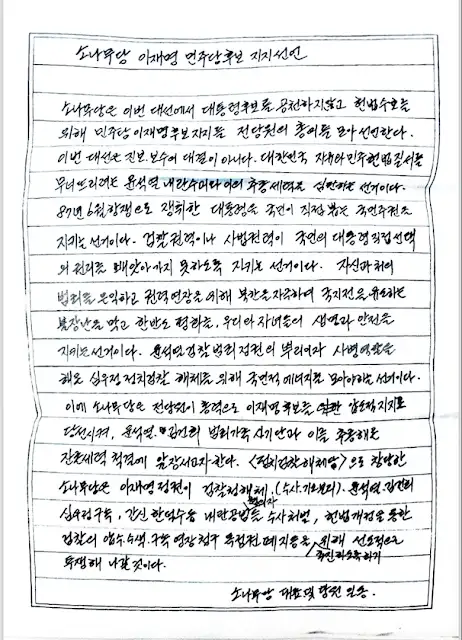 소나무당 이재명 민주당후보 지지선언
소나무당은 이번 대선에서 대통령후보를 공천하지않고 헌법수호를
위해 민주당 이재명후보지지를 전당원의 총의를 모아 선언한다.
이번 대선은 진보, 보수의 대결이 아니다. 대한민국 자유와 민주헌법질서를
무너뜨리려는 윤석열 내란수괴와 그의 추종세력을 심판하는 선거이다.
87년 6월항쟁으로 쟁취한 대통령을 국민이 직접 뽑는 국민주권을
지키는 선거이다. 검찰권력이나 사법권력이 국민의 대통령직접선택
의 권리를 빼앗아가지 못하도록 지키는 선거이다. 자신과 처의
범죄를 은익하고 권력연장을 위해 북한을 자극하여 국지전을 유도하는
불장난을 막고 한반도 평화를, 우리와 자녀들의 생명과 안전을
지키는 선거이다. 윤석열검찰범죄정권의 뿌리이자
해온 심우정 정치검찰 해체를 위해 국민적 에너지를 모아야하는 선거이다.
이에 소나무당은 전당원이 총력으로 이재명후보를 압도적지지로
당선시켜, 윤석열, 김건희 범죄가족사기단과 이를 추종해온
잔존세력 척결에 앞장서고자한다. <정치검찰해체당>으로 창당한
소나무당은 이재명정권이 검찰청해체, (수사,기소분리), 윤석열, 김건희
심우정구속, 간신 한덕수등 내란공범 혐의자를 수사처벌, 헌법개정을 통한
검찰의 압수수색, 구속영장청구 독점권 폐지등을 위해 선도적으로
추진하도록하기
투쟁해 나갈것이다.
소나무당 대표및 당원 일동.